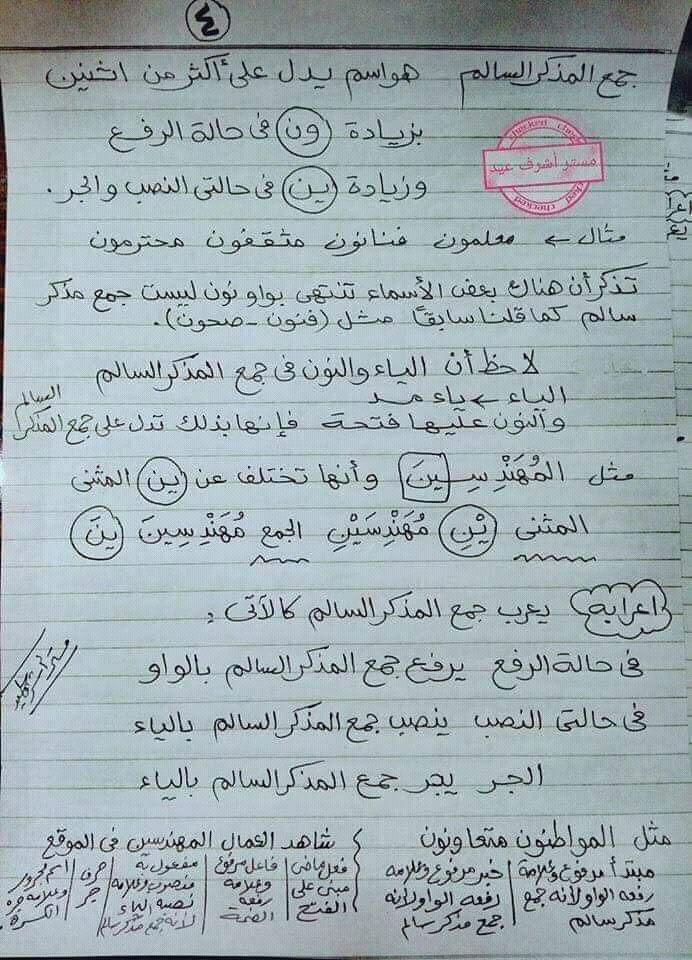 ٤
جمع المذكر السالم هو اسم يدل على أكثر من اثنين
بزيادة ون فى حالة الرفع
وزيادة ين فى حالتى النصب والجر .
checked
مستر أشرف عيد
checked
مثال ← معلمون فنانون مثقفون محترمون
تذكر أن هناك بعض الأسماء تنتهى بواو نون ليست جمع مذكر
سالم كما قلنا سابقًا مثل (فنون - صحون).
لاحظ أن الياء والنون فى جمع المذكر السالم
الياء ← ياء مد
والنون عليها فتحة فإنها بذلك تدل على جمع المذكر السالم
مثل المُهَنْدِسِينَ وأنها تختلف عن ين المثنى
المثنى يْنِ مُهَنْدِسَيْنِ الجمع مُهَنْدِسِينَ ينَ
اعرابه يعرب جمع المذكر السالم كالآتى :
فى حالة الرفع يرفع جمع المذكر السالم بالواو
فى حالتى النصب ينصب جمع المذكر السالم بالياء
الجر يجر جمع المذكر السالم بالياء
مثل المواطنون متعاونون
مبتدأ مرفوع وعلامة
رفعه الواو لأنه جمع
مذكر سالم
خبر مرفوع وعلامه
رفعه الواو لأنه
جمع مذكر سالم
شاهد العمال المهندسين فى الموقع
فعل ماضى
مبنى على
الفتح
فاعل مرفوع
وعلامه
رفعه
الضمة
مفعول به
منصوب وعلامه
نصبه الياء
لأنه جمع مذكر سالم
حرف
جر
اسم مجرور
وعلامه جره
الكسرة